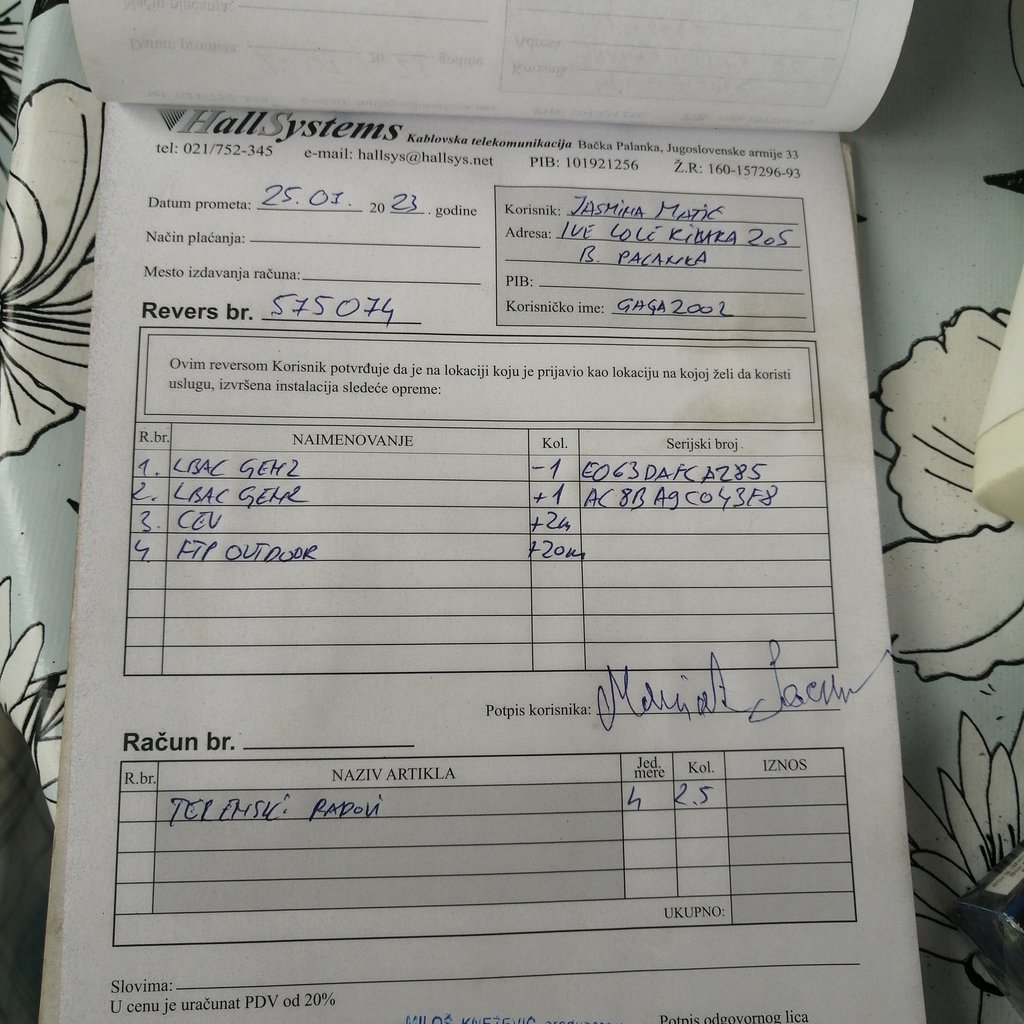 HallSystems Kablovska telekomunikacija Bačka Palanka, Jugoslovenske armije 33
tel: 021/752-345 e-mail: hallsys@hallsys.net PIB: 101921256 Ž.R: 160-157296-93
Datum prometa: 25.01. 20 23. godine
Način plaćanja:
Mesto izdavanja računa:
Revers br. 575074
Korisnik: JASMINA MATIĆ
Adresa: IVE LOLE RIBARA 205
B. PALANKA
PIB:
Korisničko ime: GAGA2002
Ovim reversom Korisnik potvrđuje da je na lokaciji koju je prijavio kao lokaciju na kojoj želi da koristi
uslugu, izvršena instalacija sledeće opreme:
R.br. NAIMENOVANJE Kol. Serijski broj
1. LBAC GEN2 -1 E063DAFCA285
2. LBAC GEN2 +1 AC8BA9C043F8
3. CEV +2m
4. FTP OUTDOOR +20m
Potpis korisnika:
Račun br.
R.br. NAZIV ARTIKLA Jed. mere Kol. IZNOS
TERENSKI RADOVI h 2.5
UKUPNO:
Slovima:
U cenu je uračunat PDV od 20%
MILOŠ KNEŽEVIĆ
Potpis odgovornog lica